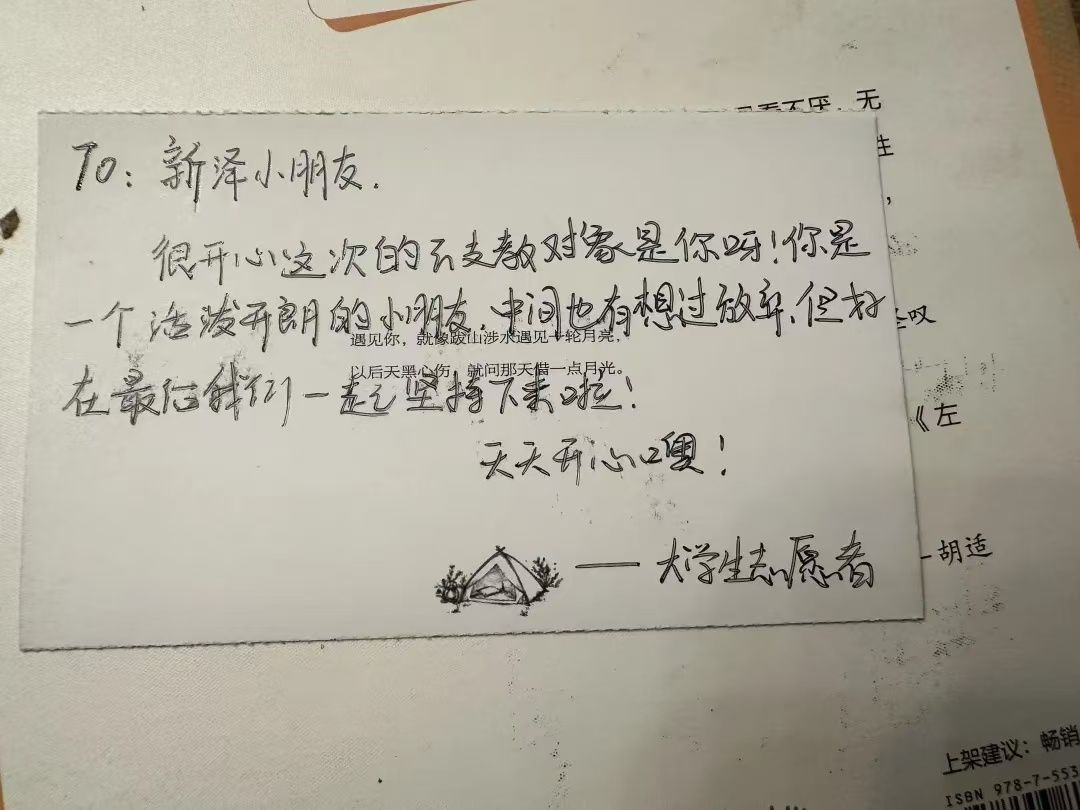 TO：新泽小朋友.
很开心这次的支教对象是你呀！你是
一个活泼开朗的小朋友,中间也有想过放弃,但好
遇见你，就像跋山涉水遇见一轮月亮，
以后天黑心伤，就问那天借一点月光。
在最后我们一起坚持下来啦！
天天开心噢！
——大学生志愿者
看不厌，无
性
，
叹
《左
-胡适
上架建议：畅销
ISBN 978-7-553